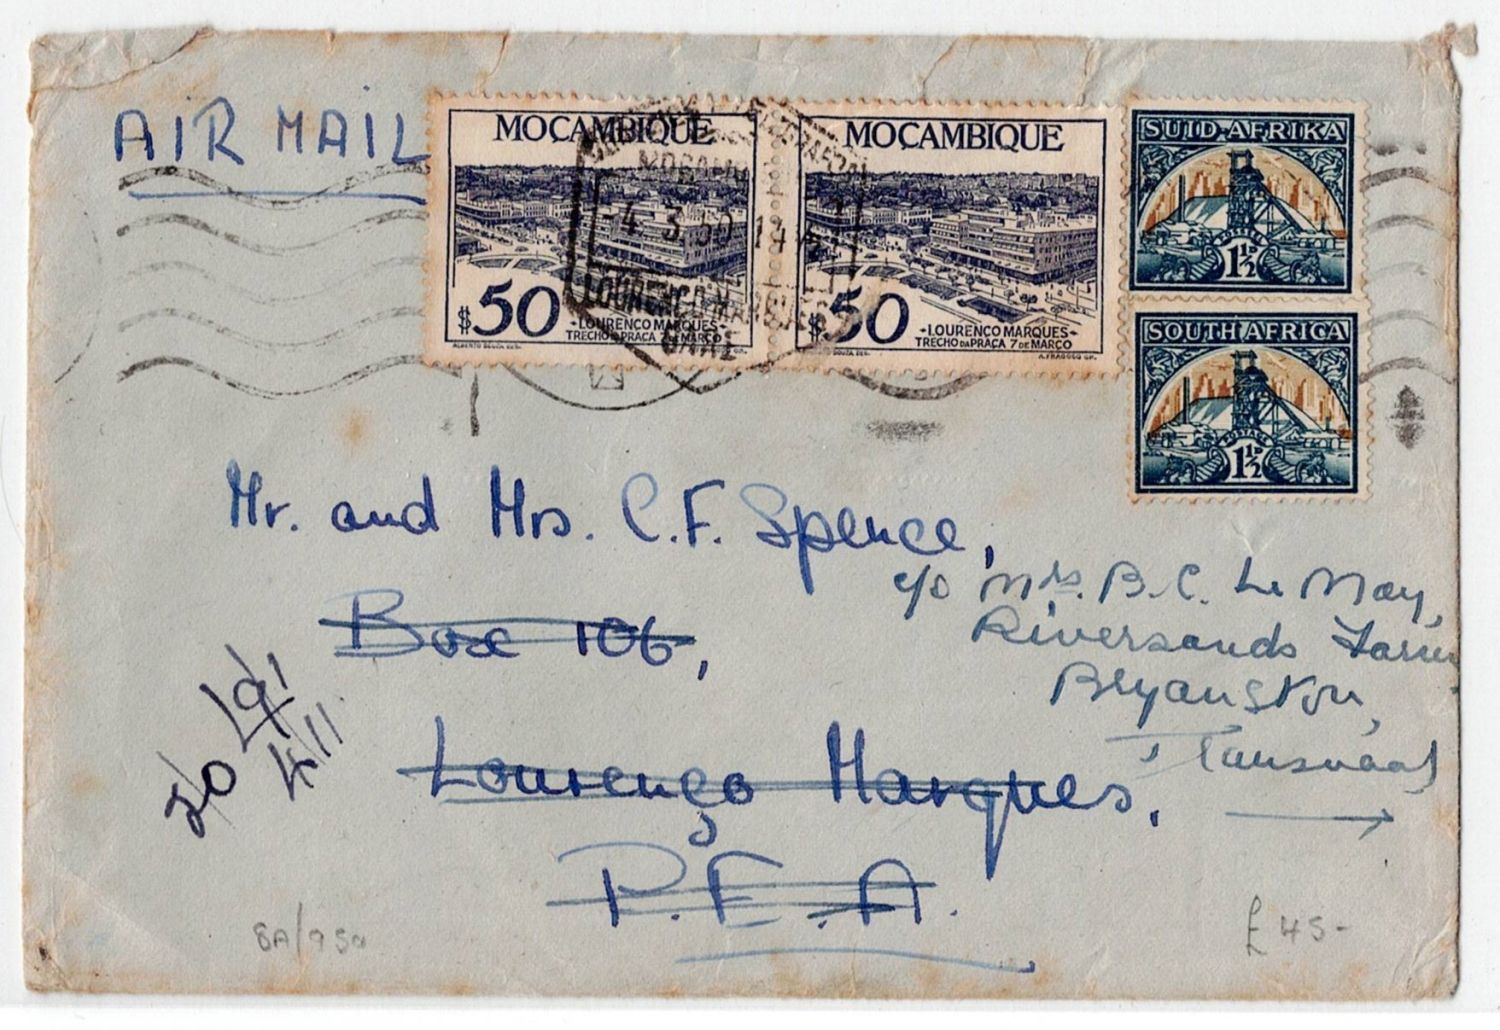 AIR MAIL
MOÇAMBIQUE
$50
LOURENCO MARQUES
TRECHO DA PRAÇA 7 DE MARÇO
MOÇAMBIQUE
$50
-LOURENCO MARQUES-
TRECHO DA PRAÇA 7 DE MARÇO
A. FRAGOSO GR.
-4.3.50
LOURENÇO MARQUES
SUID-AFRIKA
POSTAGE
1½D
SOUTH AFRICA
POSTAGE
1½D
Mr. and Mrs. C.F. Spence,
c/o Mrs. B.C. Le May,
Riversands Farm
Bryanston,
Transvaal
Box 106,
Lourenço Marques.
P.E.A.
20
4/11
8A/950
£45-